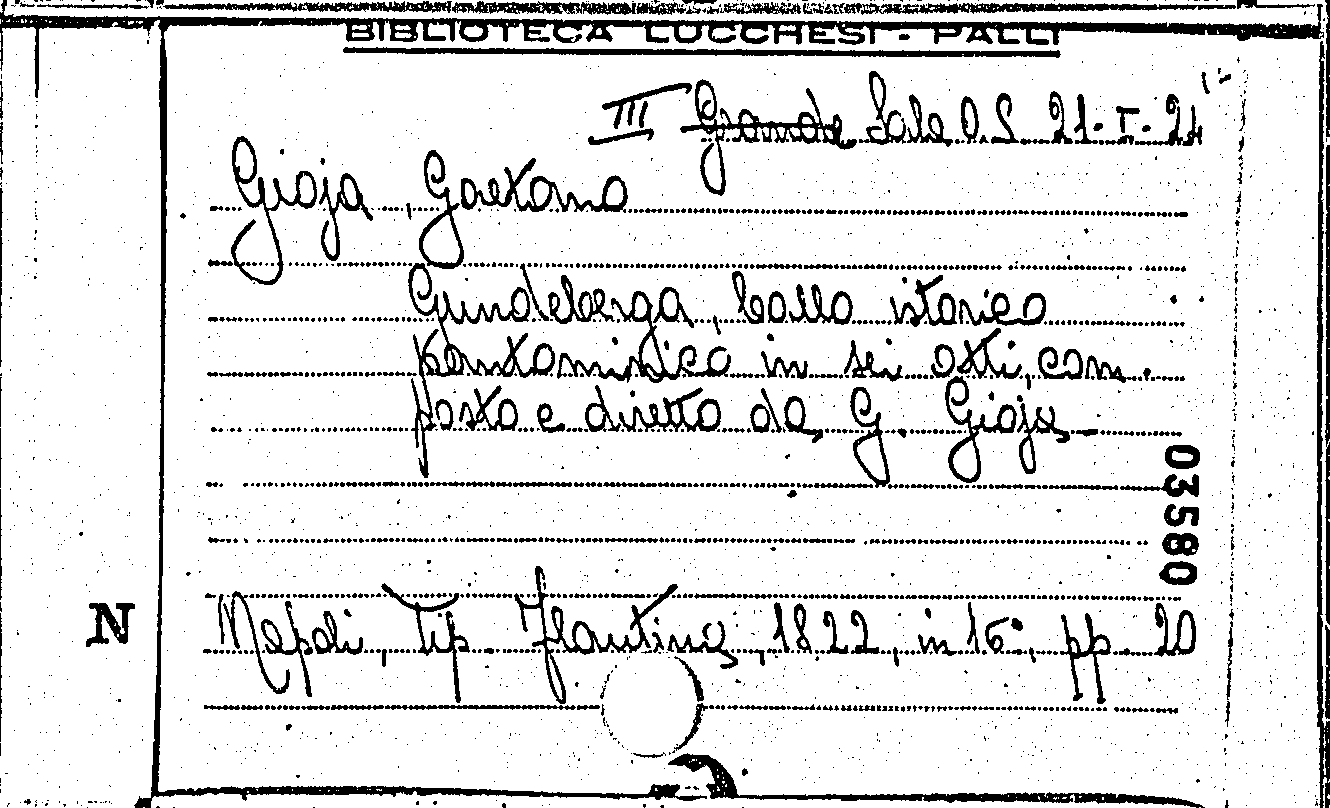 BIBLIOTECA LUCCHESI - PALLI
III Grande Sala O. S. 21. I. 24
Gioja, Gaetano
Gundeberga, ballo istorico
pantomimico in sei atti, com.
posto e diretto da G. Gioja -
03580
N
Napoli, Tip. Flautina, 1822, in 16°, pp. 20